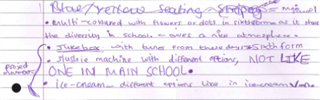 Blue/yellow seating
• Multi-coloured with flowers or dots in sixthform as it shows
the diversity in school - gives a nice atmosphere.
• Jukebox with tunes from these days - Sixth form
• Slushie machine with different options, NOT LIKE
ONE IN MAIN SCHOOL.
• ice-cream - different options like in ice-cream van.